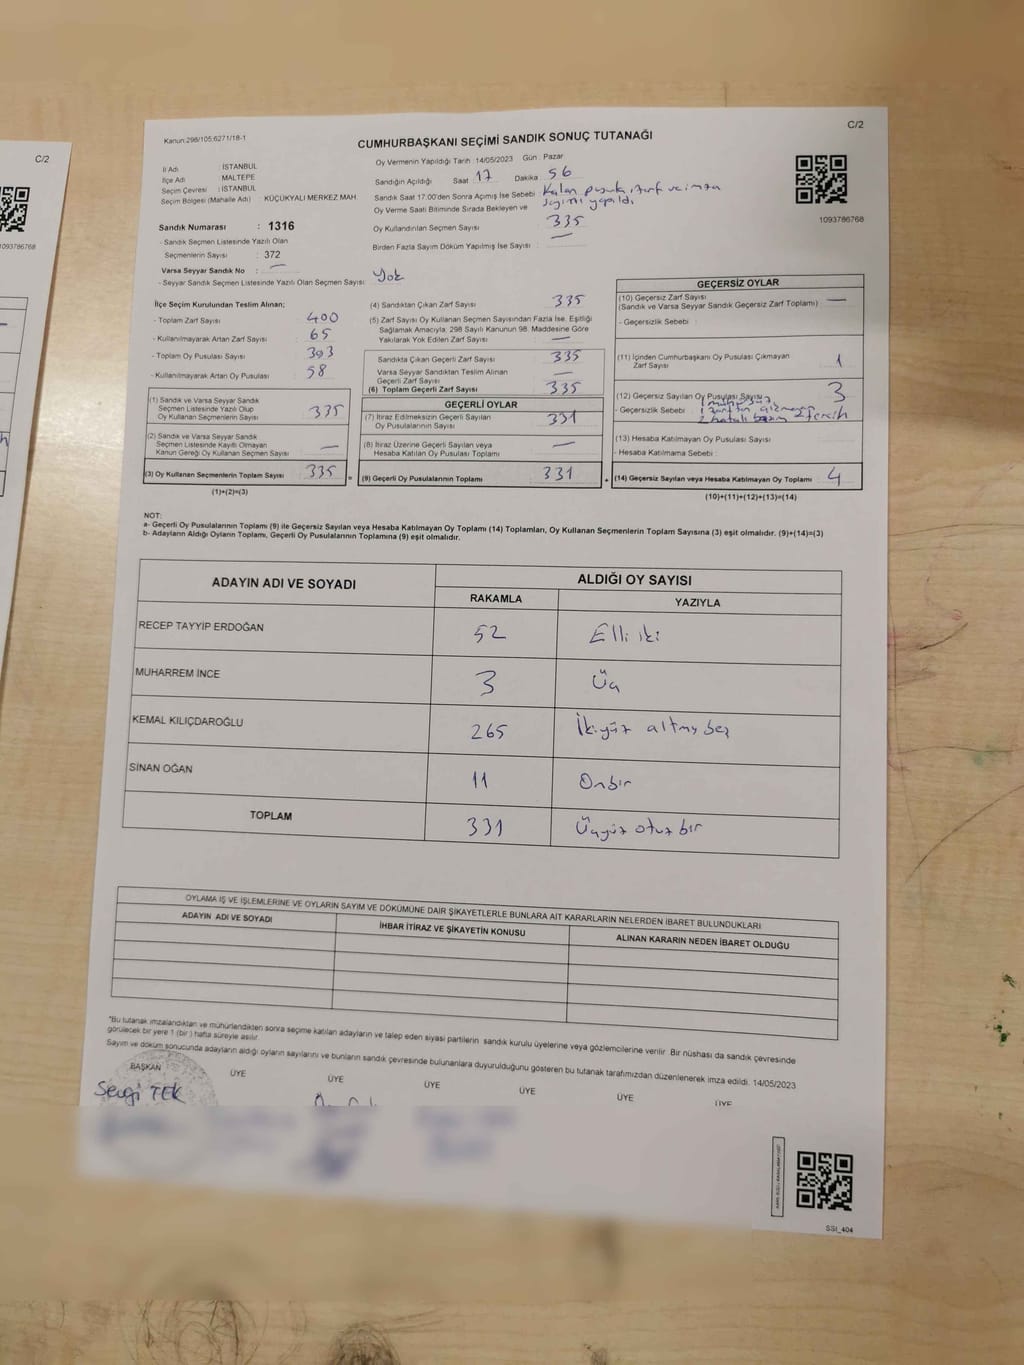 C/2
1093786768
Kanun:298/105;6271/18-1
CUMHURBAŞKANI SEÇİMİ SANDIK SONUÇ TUTANAĞI
C/2
İl Adı : İSTANBUL
İlçe Adı : MALTEPE
Seçim Çevresi : İSTANBUL
Seçim Bölgesi (Mahalle Adı) KÜÇÜKYALI MERKEZ MAH.
Oy Vermenin Yapıldığı Tarih :14/05/2023 Gün : Pazar
Sandığın Açıldığı Saat 17 Dakika 56
Sandık Saat 17:00'den Sonra Açımış İse Sebebi Kalan pusula, zarf ve imza
sayımı yapıldı
Oy Verme Saati Bitiminde Sırada Bekleyen ve
Oy Kullandırılan Seçmen Sayısı : 335
Birden Fazla Sayım Döküm Yapılmış İse Sayısı : —
1093786768
Sandık Numarası : 1316
- Sandık Seçmen Listesinde Yazılı Olan
Seçmenlerin Sayısı : 372
Varsa Seyyar Sandık No : —
- Seyyar Sandık Seçmen Listesinde Yazılı Olan Seçmen Sayısı : Yok
İlçe Seçim Kurulundan Teslim Alınan;
- Toplam Zarf Sayısı : 400
- Kullanılmayarak Artan Zarf Sayısı : 65
- Toplam Oy Pusulası Sayısı : 393
- Kullanılmayarak Artan Oy Pusulası : 58
(1) Sandık ve Varsa Seyyar Sandık
Seçmen Listesinde Yazılı Olup
Oy Kullanan Seçmenlerin Sayısı 335
(2) Sandık ve Varsa Seyyar Sandık
Seçmen Listesinde Kayıtlı Olmayan
Kanun Gereği Oy Kullanan Seçmen Sayısı —
(3) Oy Kullanan Seçmenlerin Toplam Sayısı 335 =
(1)+(2)=(3)
(4) Sandıktan Çıkan Zarf Sayısı 335
(5) Zarf Sayısı Oy Kullanan Seçmen Sayısından Fazla İse, Eşitliği
Sağlamak Amacıyla; 298 Sayılı Kanunun 98. Maddesine Göre
Yakılarak Yok Edilen Zarf Sayısı —
Sandıkta Çıkan Geçerli Zarf Sayısı 335
Varsa Seyyar Sandıktan Teslim Alınan
Geçerli Zarf Sayısı —
(6) Toplam Geçerli Zarf Sayısı 335
GEÇERLİ OYLAR
(7) İtiraz Edilmeksizin Geçerli Sayılan
Oy Pusulasının Sayısı 331
(8) İtiraz Üzerine Geçerli Sayılan veya
Hesaba Katılan Oy Pusulası Toplamı —
(9) Geçerli Oy Pusulalarının Toplamı 331 +
GEÇERSİZ OYLAR
(10) Geçersiz Zarf Sayısı
(Sandık ve Varsa Seyyar Sandık Geçersiz Zarf Toplamı) —
- Geçersizlik Sebebi :
(11) İçinden Cumhurbaşkanı Oy Pusulası Çıkmayan
Zarf Sayısı 1
(12) Geçersiz Sayılan Oy Pusulası Sayısı 3
- Geçersizlik Sebebi
(13) Hesaba Katılmayan Oy Pusulası Sayısı
- Hesaba Katılmama Sebebi :
(14) Geçersiz Sayılan veya Hesaba Katılmayan Oy Toplamı 4
(10)+(11)+(12)+(13)=(14)
NOT:
a- Geçerli Oy Pusulalarının Toplamı (9) ile Geçersiz Sayılan veya Hesaba Katılmayan Oy Toplamı (14) Toplamları, Oy Kullanan Seçmenlerin Toplam Sayısına (3) eşit olmalıdır. (9)+(14)=(3)
b- Adayların Aldığı Oyların Toplamı, Geçerli Oy Pusulalarının Toplamına (9) eşit olmalıdır.
ADAYIN ADI VE SOYADI ALDIĞI OY SAYISI
RAKAMLA YAZIYLA
RECEP TAYYİP ERDOĞAN 52 Elli iki
MUHARREM İNCE 3 Üç
KEMAL KILIÇDAROĞLU 265 İkiyüz altmış beş
SİNAN OĞAN 11 Onbir
TOPLAM 331 Üçyüz otuz bir
OYLAMA İŞ VE İŞLEMLERİNE VE OYLARIN SAYIM VE DÖKÜMÜNE DAİR ŞİKAYETLERLE BUNLARA AİT KARARLARIN NELERDEN İBARET BULUNDUKLARI
ADAYIN ADI VE SOYADI İHBAR İTİRAZ VE ŞİKAYETİN KONUSU ALINAN KARARIN NEDEN İBARET OLDUĞU
*Bu tutanak imzalandıktan ve mühürlendikten sonra seçime katılan adayların ve talep eden siyasi partilerin sandık kurulu üyelerine veya gözlemcilerine verilir. Bir nüshası da sandık çevresinde
görülecek bir yere 1 (bir ) hafta süreyle asılır.
Sayım ve döküm sonucunda adayların aldığı oyların sayılarını ve bunların sandık çevresinde bulunanlara duyurulduğunu gösteren bu tutanak tarafımızdan düzenlenerek imza edildi. 14/05/2023
BAŞKAN ÜYE ÜYE ÜYE ÜYE ÜYE ÜYE
Sevgi TEK
SSI_404